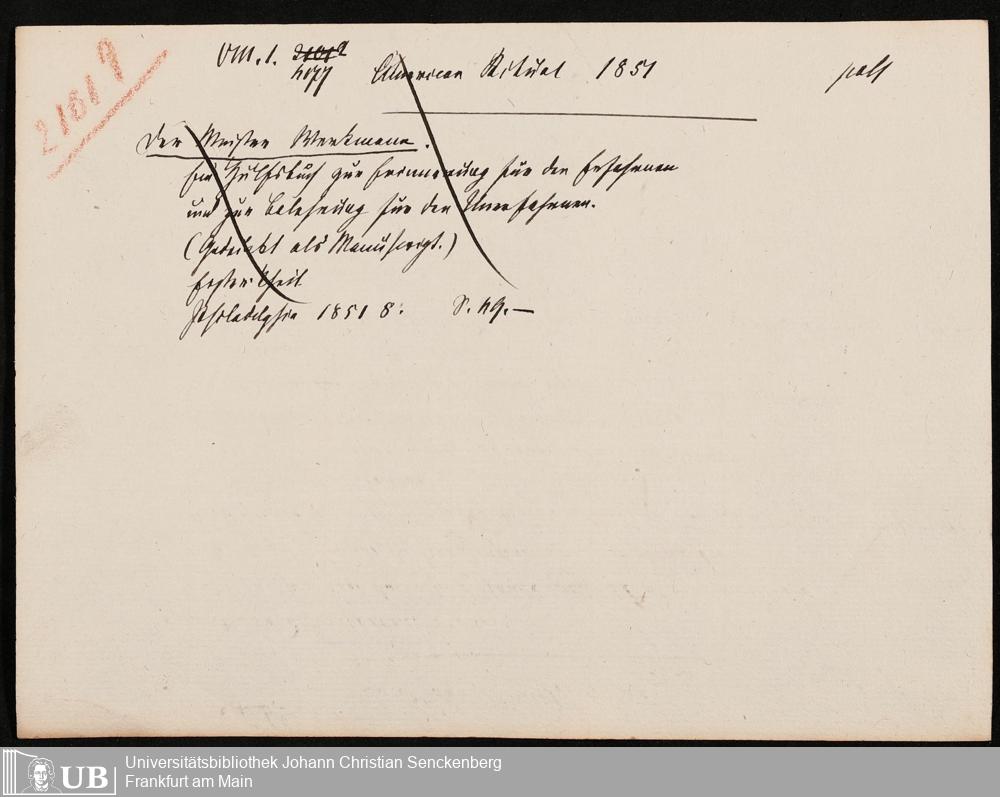 2181?
VM. 1.
American Ritual 1851
Der Meister Werkmann.
Ein Hülfsbuch zur Erinnerung für den Erfahrenen
und zur Belehrung für den Unerfahrenen.
(Gedruckt als Manuscript.)
Erster Theil
Philadelphia 1851 8. S. 49.—
UB
Universitätsbibliothek Johann Christian Senckenberg
Frankfurt am Main